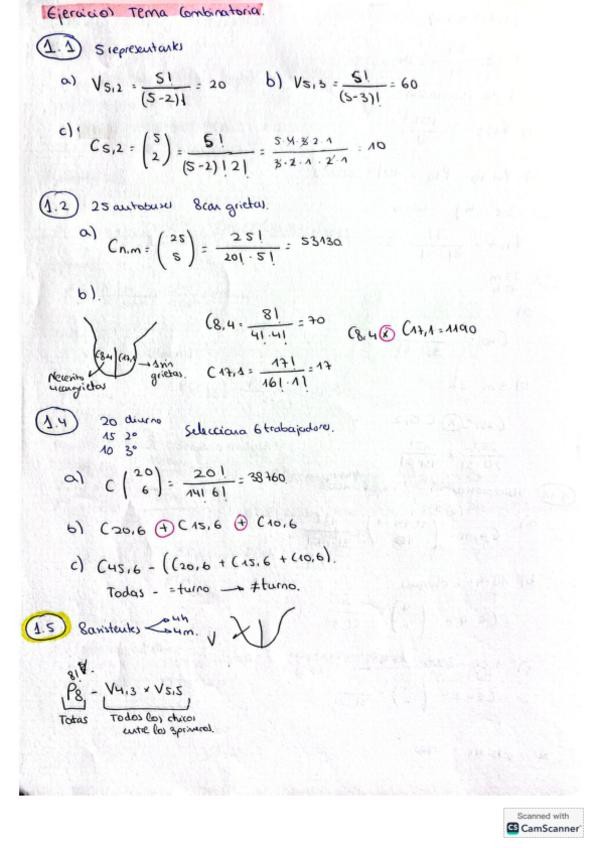 Ejercicios Tema Combinatoria.
1.1 5 representantes
a) V5,2 = 5! / (5-2)! = 20 b) V5,3 = 5! / (5-3)! = 60
c) C5,2 = (5 2) = 5! / (5-2)! 2! = 5·4·3·2·1 / 3·2·1·2·1 = 10
1.2 25 autobuses 8 con grietas.
a) Cn,m = (25 5) = 25! / 20! · 5! = 53130
b).
C8,4 C17,1
Necesito 4 con grietas
1 sin grietas.
C8,4 = 8! / 4! · 4! = 70
C17,1 = 17! / 16! · 1! = 17
C8,4 x C17,1 = 1190
1.4 20 diurno
15 2º
10 3º
Selecciona 6 trabajadores.
a) C (20 6) = 20! / 14! 6! = 38760
b) C20,6 + C15,6 + C10,6
c) C45,6 - (C20,6 + C15,6 + C10,6).
Todas - = turno → ≠ turno.
1.5 8 asistentes 4h
4m.
V
8!
P8 - V4,3 x V5,5
Totas Todos los chicos
entre los 3 primeros.
Scanned with
CS CamScanner